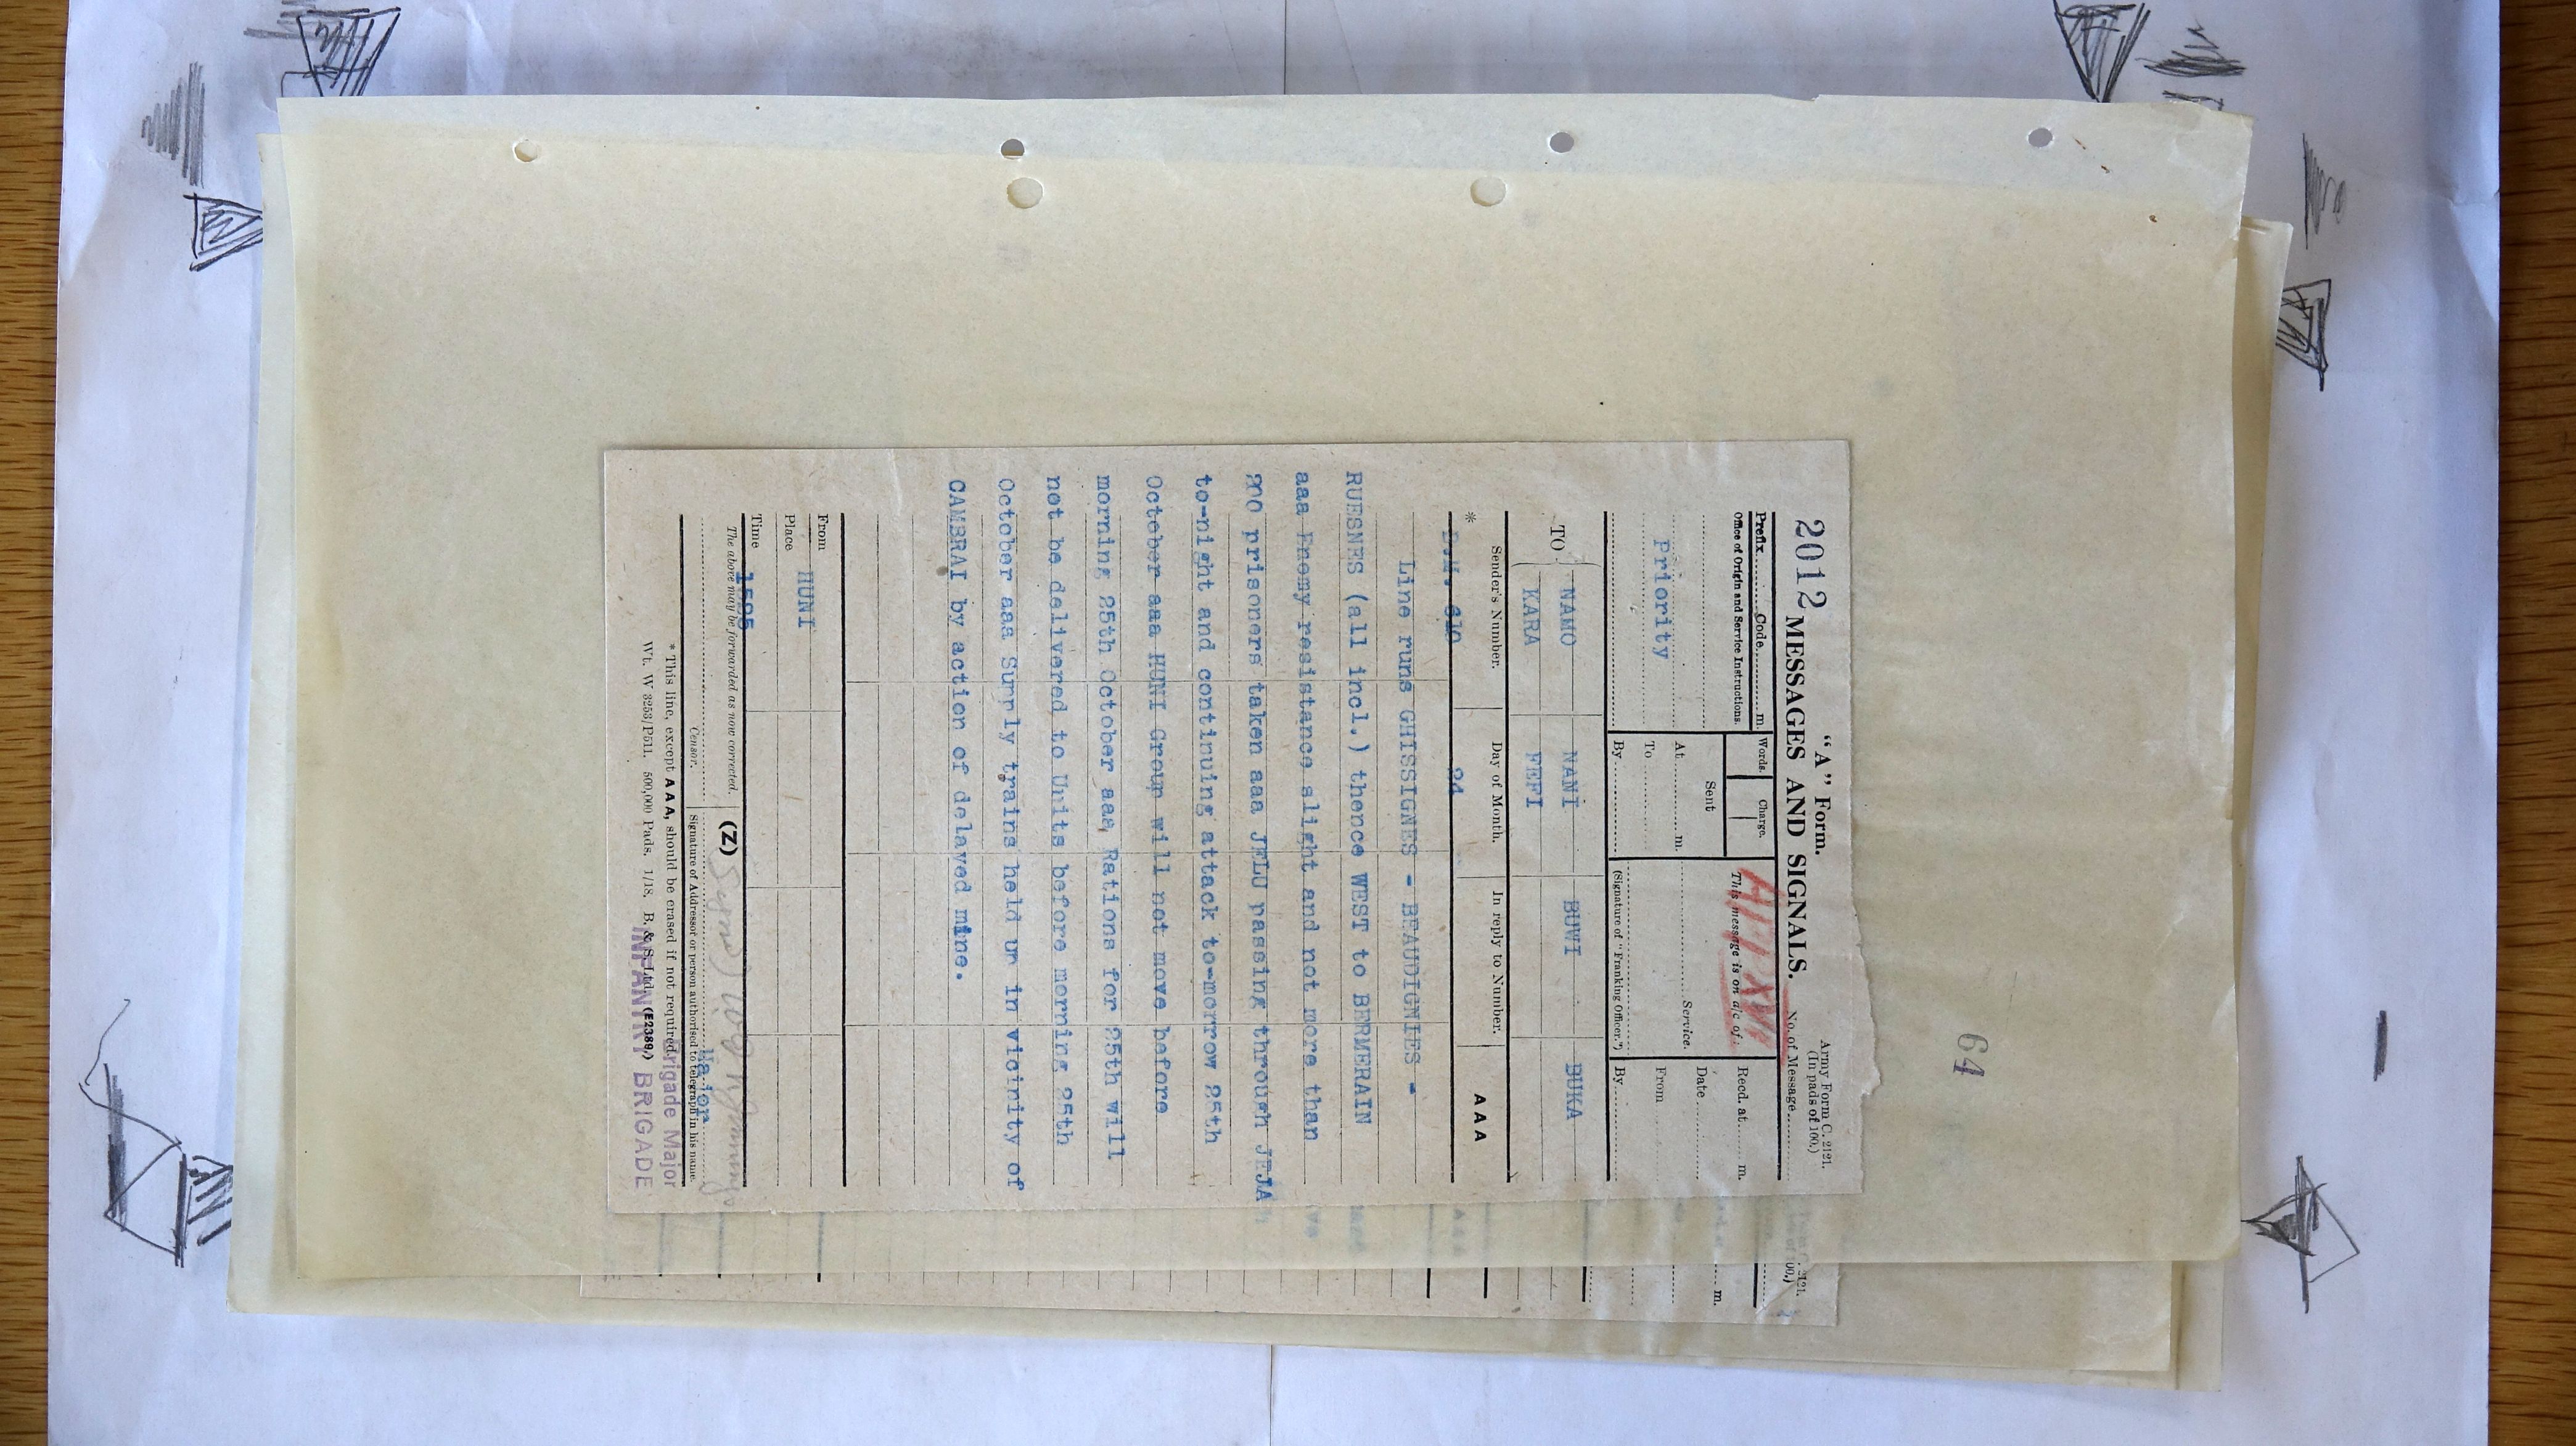 64
"A" Form.
Army Form C. 2121.
(In pads of 100.)
2012 MESSAGES AND SIGNALS.
No. of Message
Prefix Code m.
Words.
Charge.
This message is on a/c of:
Recd. at m.
Office of Origin and Service Instructions.
Sent
Service.
Date
Priority
At m.
From
To
By
(Signature of "Franking Officer.")
By
TO
NAMO NANI BUWI BUKA
KARA FEFI
Sender's Number. Day of Month. In reply to Number. AAA
* B.M. 610 24
Line runs GHISSIGNES - BEAUDIGNIES -
RUESNES (all incl.) thence WEST to BERMERAIN
aaa Enemy resistance slight and not more than
200 prisoners taken aaa JELU passing through JEJA
to-night and continuing attack to-morrow 25th
October aaa HUNI Group will not move before
morning 25th October aaa Rations for 25th will
not be delivered to Units before morning 25th
October aaa Supply trains held up in vicinity of
CAMBRAI by action of delayed mine.
From HUNI
Place
Time 1505
The above may be forwarded as now corrected. (Z)
Major
Censor. Signature of Addressor or person authorised to telegraph in his name.
Brigade Major
* This line, except AAA, should be erased if not required.
Wt. W 3253/P511. 500,000 Pads. 1/18. B. & S. Ltd. (E2389.)
INFANTRY BRIGADE